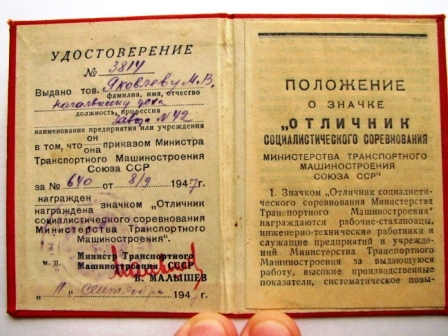 УДОСТОВЕРЕНИЕ
№ 3814
Выдано тов. Яковлеву М. В.
фамилия, имя, отчество
Начальнику цеха
должность, профессия
завода № 42
наименование предприятия или учреждения
в том, что он приказом Министра
она
Транспортного Машиностроения
Союза ССР
за № 640 от 8/9 1947г.
награжден
награждена значком „Отличник
социалистического соревнования
Министерства Транспортного
Машиностроения".
м. п. Министр Транспортного
Машиностроения СССР
В. МАЛЫШЕВ
„11" сентября 194
ПОЛОЖЕНИЕ
О ЗНАЧКЕ
„ОТЛИЧНИК
СОЦИАЛИСТИЧЕСКОГО СОРЕВНОВАНИЯ
МИНИСТЕРСТВА ТРАНСПОРТНОГО
МАШИНОСТРОЕНИЯ
СОЮЗА ССР"
1. Значком „Отличник социалистиче-
ского соревнования Министерства
Транспортного Машиностроения"
награждаются рабочие-стахановцы,
инженерно-технические работники и
служащие предприятий и учреждений
Министерства за выдающуюся
работу, высокие производственные
показатели, систематическое повы-